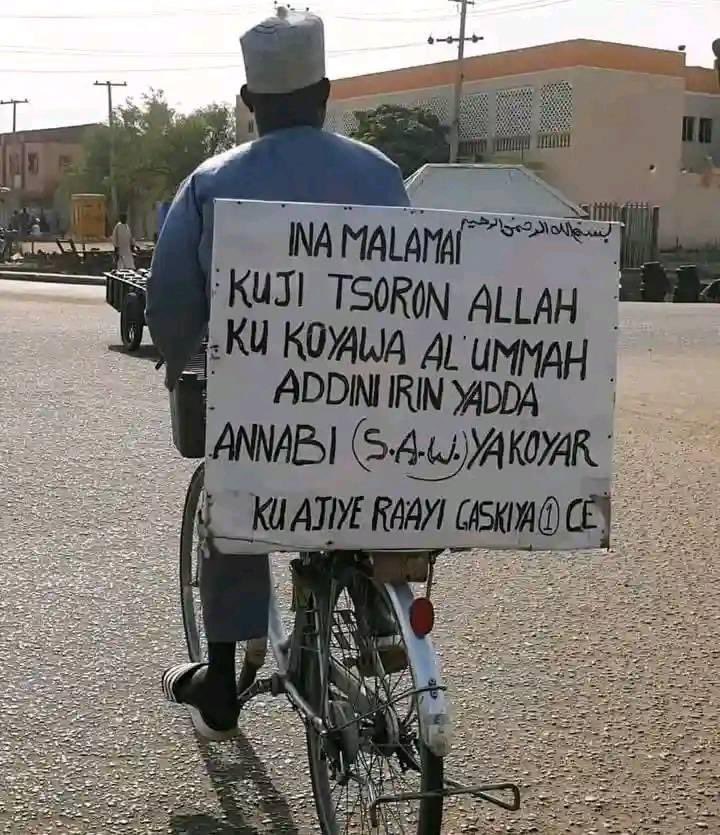 INA MALAMAI بسم الله الرحمن الرحيم
KUJI TSORON ALLAH
KU KOYAWA AL'UMMAH
ADDINI IRIN YADDA
ANNABI (S.A.W.) YAKOYAR
KU AJIYE RA'AYI GASKIYA 1 CE